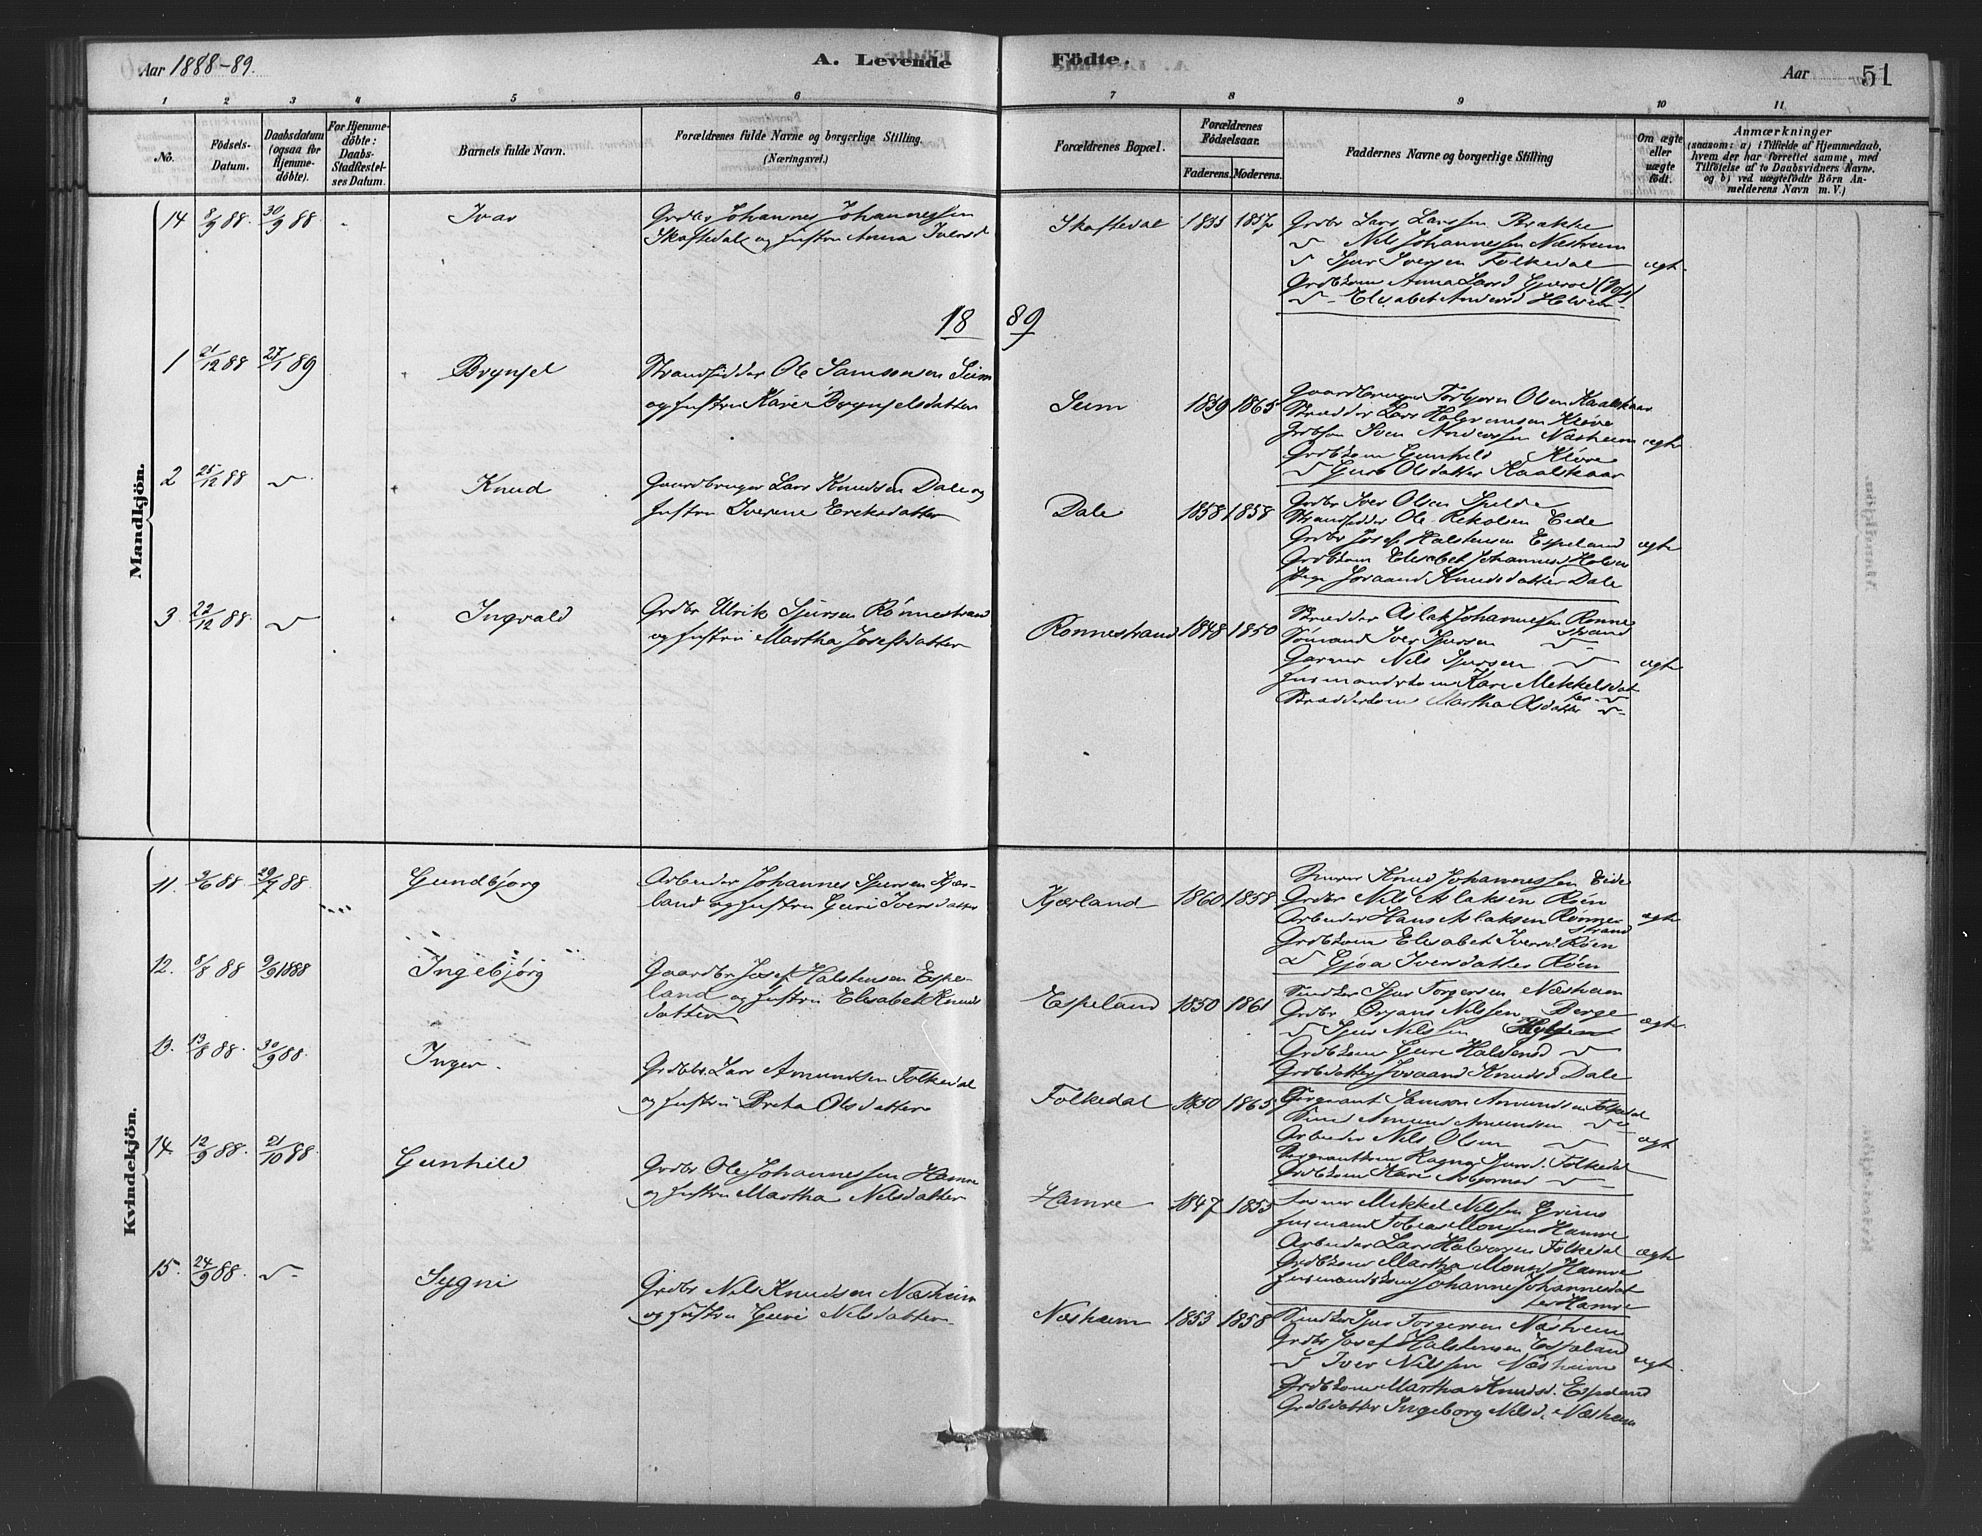 Aar 1888-89.
A. Levende Födte.
Aar
51
1 2 3 4 5 6 7 8 9 10 11
No.
Födsels-Datum.
Daabsdatum (ogsaa for Hjemme-döbte).
For Hjemme-döbte: Daabs-Stadfæstel-ses Datum.
Barnets fulde Navn.
Forældrenes fulde Navne og borgerlige Stilling.
(Næringsvei.)
Forældrenes Bopæl.
Forældrenes Födselsaar.
Faderens. Moderens.
Faddernes Navne og borgerlige Stilling
Om ægte eller uægte födt.
Anmærkninger
(saasom: a) i Tilfælde af Hjemmedaab, hvem der har forrettet samme, med Tilföielse af to Daabsvidners Navne. og b) ved uægtefödte Börn Anmelderens Navn m. V.)
Mandkjön.
14 8/9 88. 30/9 88 Ivar
Grdbr Johannes Johannessen
Skaftedal og Hustru Anna Iversd
Skaftedal 1855 1857
Grdbr Lars Larssen Brække
Nils Johannessen Næsheim
Sjur Iversen Folkedal ægt.
Grdbkone Anna Larsd
Elisabet
18 89
1 21/12 88 27/1 89 Brynjel
Strandsidder Ole Samsonsen Seim
og Hustru Kari Brynjelsdatter
Seim 1859 1865
Gaardbruger Torbjørn Olsen Kaalskaar
Lars Kløve
Grdbsøn Iver Anderssen Næsheim ægte
Grdbkone Gunhild Kløve
Guro Olsdatter Kaalskaar
2 25/12 88 Knud
Gaardbruger Lars Knudsen Dale og
Hustru Iverine Eriksdatter
Dale 1858 1858
Grdbr Iver Olsen Spilde
Strandsidder Ole Eide
Grdbr Josef Halstensen Espeland ægte
Grdbkone Elisabet Johannesd
Pige Joraand Knudsdatter Dale
3 22/12 88. Ingvald
Grdbr Ulrik Sjursen Rønnestrand
og Hustru Martha Josefsdatter
Rønnestrand 1848 1850
Aslak Johannessen Rønne
strand
Sømand Iver Sjursen
Garver Nils Sjursen ægte
Husmandskone Kari Mikkelsdat
ter
Martha Olsdatter
Kvindekjön.
11. 9/6 88 29/7 88 Gundbjørg
Arbeider Johannes Sjursen Kjær-
land og Hustru Guri Iversdatter
Kjærland 1860 1858
Knud Johannessen Eide
Grdbr Nils Aslaksen Røen
Arbeider Hans Aslaksen Rønne ægte
strand
Grdbkone Elisabet Iversd Røen
Gjøa Iversdatter Røen
12. 8/8 88 9/9 1888 Ingebjørg
Gaardbr Josef Halstensen Espe-
land og Hustru Elisabet Knuds
datter
Espeland 1850 1861
Sjur Torgersen Næsheim
Grdbr Ørjans Nilssen Berge
Sjur Nilssen ægte
Grdbkone Guri Halstensd
Grdbdatter Joraand Knudsd Dale
13. 13/8 88 30/9 88. Inger
Grdbr. Lars Amundsen Folkedal
og Hustru Brita Olsdatter
Folkedal 1850 1865
Sergeant Samson Amundsen Folkedal
Amund Amundsen
Arbeider Nils Olsen ægt
Sergeantkone Ragna Folkedal
Grdbkone Kari
14. 12/9 88. 21/10 88 Gunhild
Grdbr Ole Johannessen Hamre
og Hustru Martha Nilsdatter
Hamre 1847 1855
Mikkel Nilssen
Husmand Tobias Monsen Hamre
Arbeider Lars Halvorsen Folkedal ægte
Grdbkone Martha Monsd Hamre
Husmandskone Johanne Johannesdat
ter Hamre
15. 24/9 88. Sygni
Grdbr Nils Knudsen Næsheim
og Hustru Guri Nilsdatter
Næsheim 1853 1858
Sjur Torgersen Næsheim
Grdbr Josef Halstensen Espeland
Iver Nilssen Næsheim ægt.
Grdbkone Martha Knudsd. Espeland
Grdbdatter Ingeborg Nilsd. Næsheim